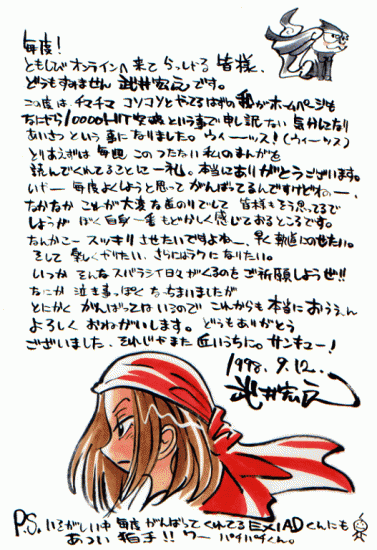 毎度!
ともしびオンラインへ来てらっしゃる皆様、
どうもすみません 武井宏之です。
この度は、チマチマ コソコソとやってるはずの私がホームページも
なにやら10000HIT突破という事で申し訳ない気分になり
あいさつという事になりました。ウィーッス!(ウィーッス)
とりあえずは毎週 このつたない私のまんがを
読んでくれてることに一礼。本当にありがとうございます。
いやー 毎度よくしようと思ってがんばってるんですけどねー、
なかなか これが大変な道のりでして 皆様もそう思ってるで
しょうが ぼく自身一番もどかしく感じておるところです。
なんかこー スッキリさせたいですよねー、早く軌道にのせたい。
そして楽しくやりたい、さらにはラクになりたい。
いつか そんなスバラシイ日々がくるのをご祈願しょうぜ!!
なにか泣き事っぽくなっちまいましたが
とにかく がんばってはいるので これからも本当におうえん
よろしく おねがいします。どうもありがとう
ございました、それじゃまた近いうちに。サンキュー!
1998. 9. 12.
武井宏之
P.S. いそがしい中 毎度がんばってくれてるEXIADくんにも
あつい拍手!! ワー パチパチくん。